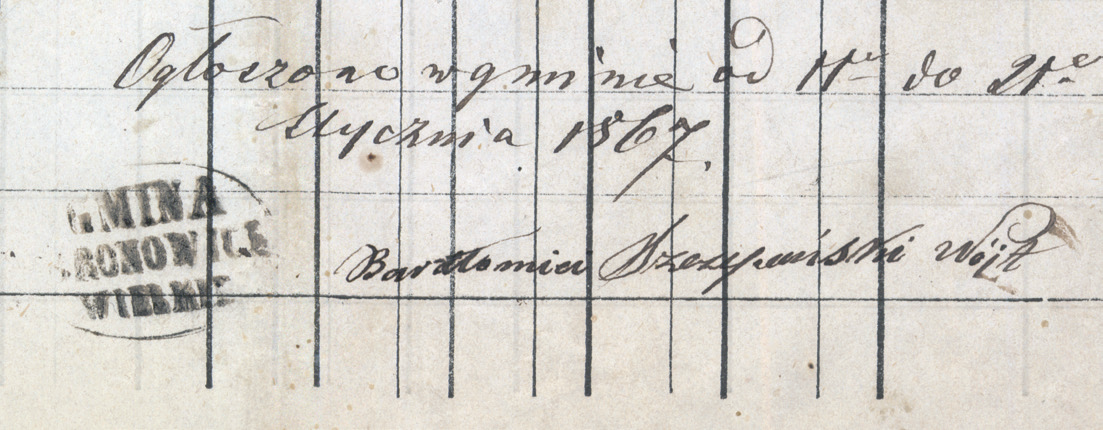 Ogłoszono w gminie od 11go do 21go
Stycznia 1867.
GMINA
BRONOWICE
WIELKIE
Bartłomiej Szczepański Wójt